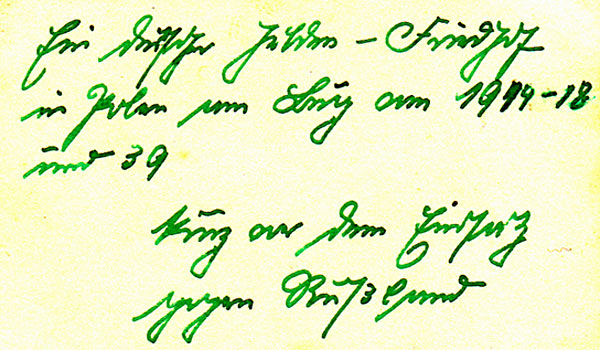 Ein deutscher Helden – Friedhof
in Polen am Bug von 1914-18
und 39
kurz vor dem Einsatz
gegen Rußland